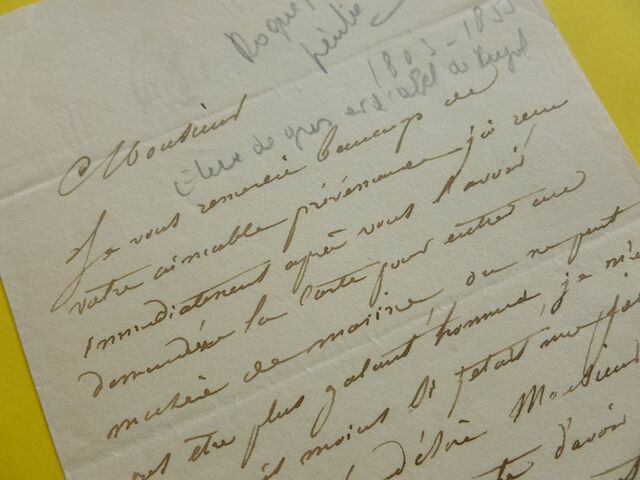 Roque
peintre
1803-1855
Elève de gros et d'abel de Pujol
Monsieur
Je vous remercie beaucoup de
votre aimable prévenance j'ai reçu
immediatement après vous l'avoir
demandée la carte pour entrer au
musée de marine on ne peut
pas être plus galant homme, je m'e
moins si j'etait
désire Monsieur
d'avoir